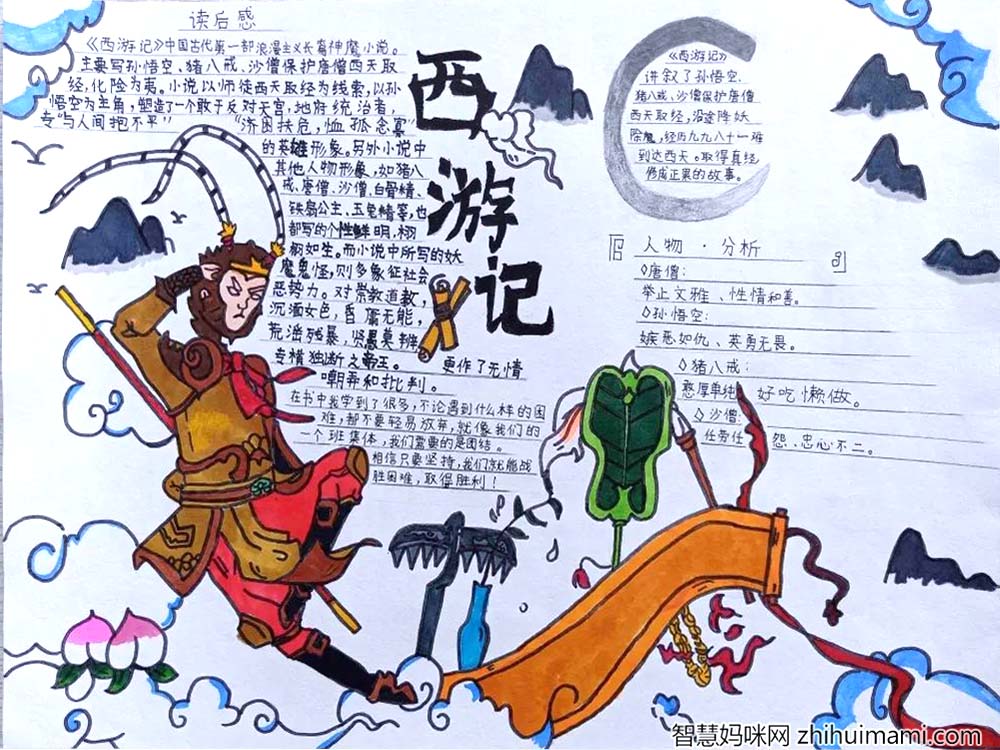 读后感
《西游记》中国古代第一部浪漫主义长篇神魔小说。
主要写孙悟空、猪八戒、沙僧保护唐僧西天取
经,化险为夷。小说以师徒西天取经为线索,以孙
悟空为主角,塑造了一个敢于反对天宫,地府统治者,
专"与人间抱不平" "济困扶危,恤孤念寡"
的英雄形象。另外小说中
其他人物形象,如猪八
戒、唐僧、沙僧、白骨精、
铁扇公主、玉兔精等,也
都写的个性鲜明,栩
栩如生。而小说中所写的妖
魔鬼怪,则多象征社会
恶势力。对崇教道教,
沉湎女色,昏庸无能,
荒淫残暴,贤愚莫辨,
专横独断之帝王。 更作了无情
嘲弄和批判。
在书中我学到了很多,不论遇到什么样的困
难,都不要轻易放弃,就像我们的
一个班集体,我们需要的是团结。
相信只要坚持,我们就能战
胜困难,取得胜利!
西游记
《西游记》
讲叙了孙悟空.
猪八戒、沙僧保护唐僧
西天取经,沿途降妖
除魔,经历九九八十一难
到达西天。取得真经
修成正果的故事。
人物·分析
◊唐僧:
举止文雅、性情和善。
◊孙悟空:
嫉恶如仇、英勇无畏。
◊猪八戒:
憨厚单纯 好吃懒做。
◊沙僧:
任劳任怨、忠心不二。
智慧妈咪网 zhihuimami.com